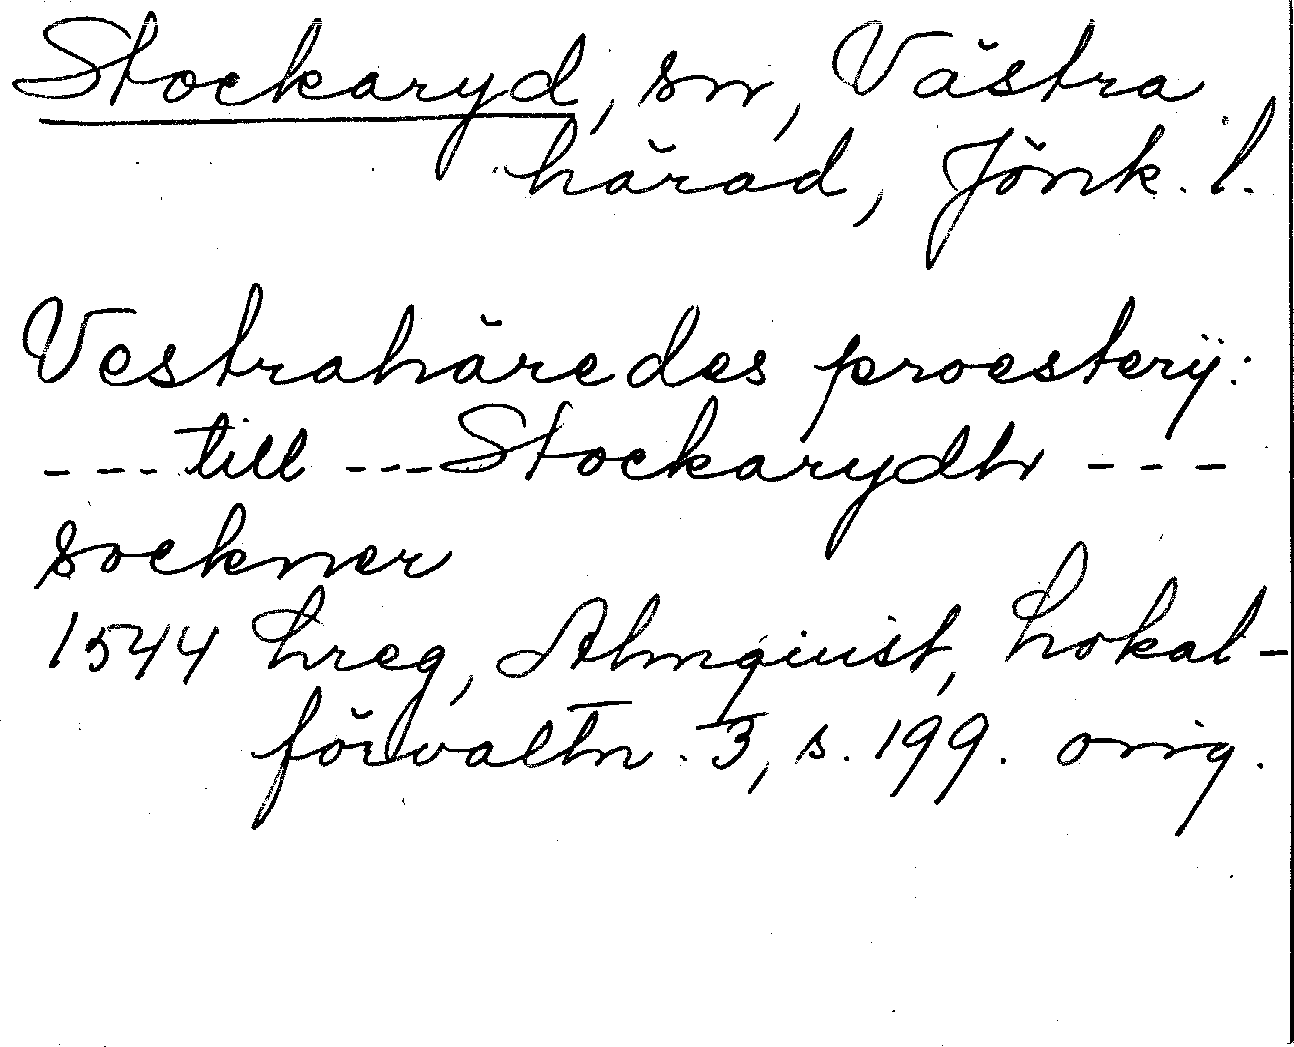 Stockaryd, sn, Västra
härad, Jönk. l.
Vestrahäredes proesterij:
--- till --- Stockarydh ---
sockner
1544 Lreg, Almquist, Lokal-
förvaltn. 3, s. 199. orig.